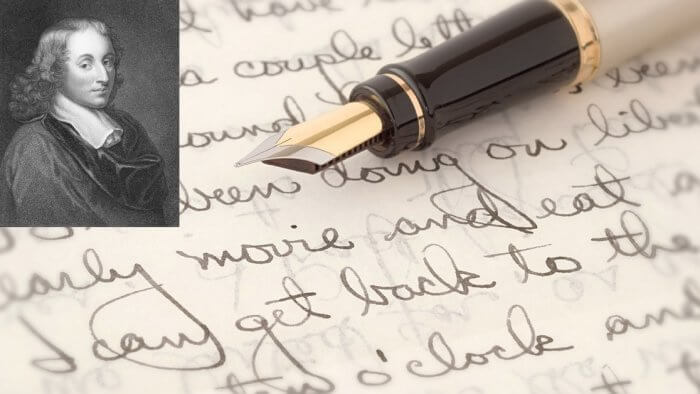 have
a couple lett
ound been
been doing on liber
early movie and eat a
I can get back to the
ten o'clock and